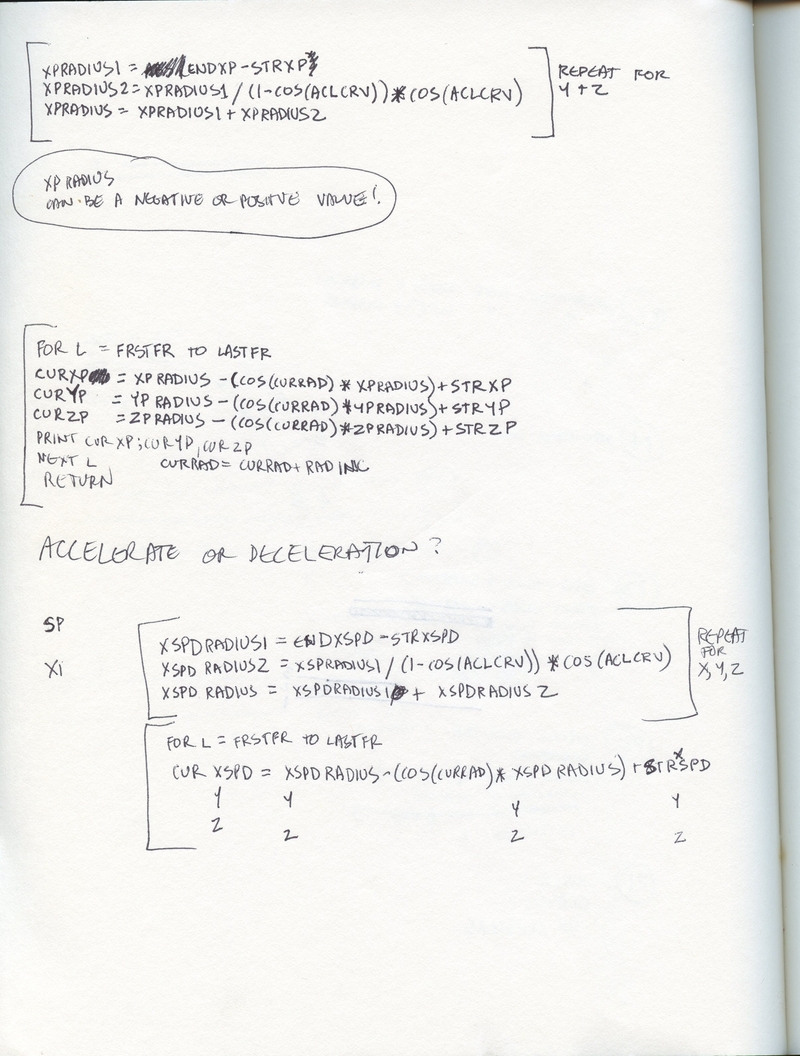 XPRADIUS1 = ENDXP-STRXP
XPRADIUS2=XPRADIUS1/(1-COS(ACLCRV))*COS(ACLCRV)
XPRADIUS = XPRADIUS1+XPRADIUS2
REPEAT FOR
Y+Z
XPRADIUS
CAN BE A NEGATIVE OR POSITIVE VALUE!
FOR L = FRSTFR TO LASTFR
CURXP = XPRADIUS-(COS(CURRAD)*XPRADIUS)+STRXP
CURYP = YPRADIUS-(COS(CURRAD)*YPRADIUS)+STRYP
CURZP =ZPRADIUS-(COS(CURRAD)*ZPRADIUS)+STRZP
PRINT CURXP;CURYP,CURZP
NEXT L CURRAD=CURRAD+RADINC
RETURN
ACCELERATE OR DECELERATION?
SP
Xi
XSPDRADIUS1 = ENDXSPD-STRXSPD
XSPD RADIUS2 =XSPRADIUS1/(1-COS(ACLCRV))*COS(ACLCRV)
XSPD RADIUS = XSPDRADIUS1 + XSPDRADIUS2
REPEAT
FOR
X,Y,Z
FOR L = FRSTFR TO LASTFR
CUR XSPD = XSPDRADIUS-(COS(CURRAD)*XSPDRADIUS)+STRXSPD
Y Y Y Y
Z Z Z Z